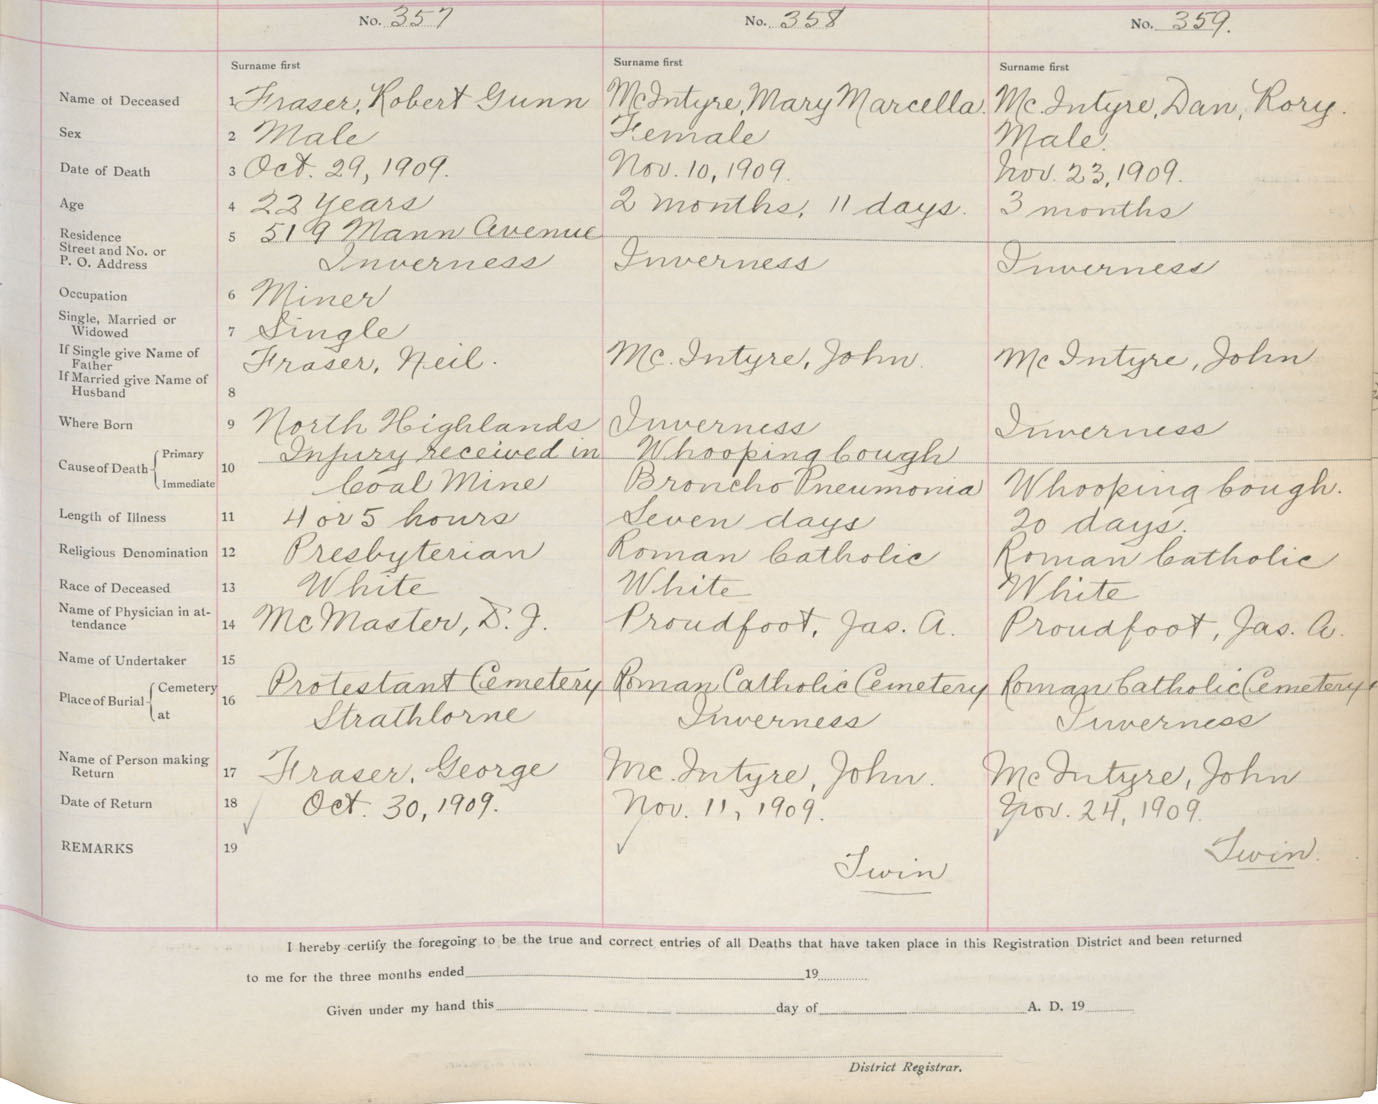 No. 357 No. 358 No. 359.
Surname first Surname first Surname first
Name of Deceased 1 Fraser, Robert Gunn McIntyre, Mary Marcella. Mc. Intyre, Dan, Rory.
Sex 2 Male Female Male.
Date of Death 3 Oct. 29, 1909. Nov. 10, 1909. Nov. 23, 1909.
Age 4 22 Years 2 months, 11 days. 3 months
Residence 5 519 Mann Avenue
Street and No. or
P. O. Address Inverness Inverness Inverness
Occupation 6 Miner
Single, Married or
Widowed 7 Single
If Single give Name of
Father Fraser, Neil. Mc. Intyre, John. Mc Intyre, John
If Married give Name of
Husband 8
Where Born 9 North Highlands Inverness Inverness
Cause of Death Primary 10 Injury received in Whooping Cough
Immediate Coal Mine Broncho Pneumonia Whooping Cough.
Length of Illness 11 4 or 5 hours Seven days 20 days.
Religious Denomination 12 Presbyterian Roman Catholic Roman Catholic
Race of Deceased 13 White White White
Name of Physician in at-
tendance 14 McMaster, D. J. Proudfoot, Jas. A. Proudfoot, Jas. A.
Name of Undertaker 15
Place of Burial Cemetery 16 Protestant Cemetery Roman Catholic Cemetery Roman Catholic Cemetery
at Strathlorne Inverness Inverness
Name of Person making
Return 17 Fraser, George Mc. Intyre, John. Mc Intyre, John
Date of Return 18 Oct. 30, 1909. Nov. 11, 1909. Nov. 24, 1909.
REMARKS 19 Twin Twin.
I hereby certify the foregoing to be the true and correct entries of all Deaths that have taken place in this Registration District and been returned
to me for the three months ended 19
Given under my hand this day of A. D. 19
District Registrar.